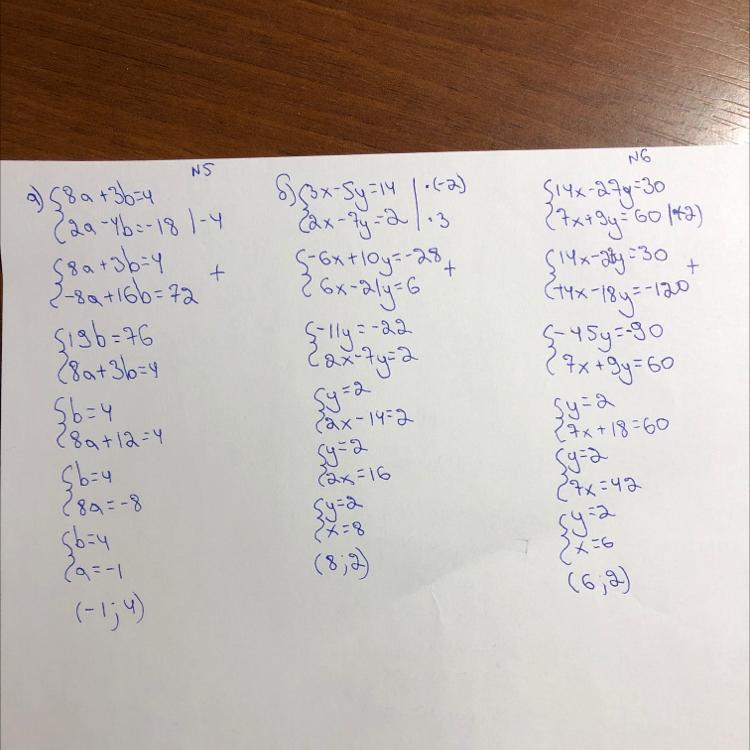 N5
а) {8a+3b=4
{2a-4b=-18 |-4
{8a+3b=4
+
{-8a+16b=72
{19b=76
{8a+3b=4
{b=4
{8a+12=4
{b=4
{8a=-8
{b=4
{a=-1
(-1;4)
б) {3x-5y=14 | ·(-2)
{2x-7y=2 | ·3
{-6x+10y=-28
+
{6x-21y=6
{-11y=-22
{2x-7y=2
{y=2
{2x-14=2
{y=2
{2x=16
{y=2
{x=8
(8;2)
N6
{14x-27y=30
{7x+9y=60 |(-2)
{14x-27y=30
+
{-14x-18y=-120
{-45y=-90
{7x+9y=60
{y=2
{7x+18=60
{y=2
{7x=42
{y=2
{x=6
(6;2)